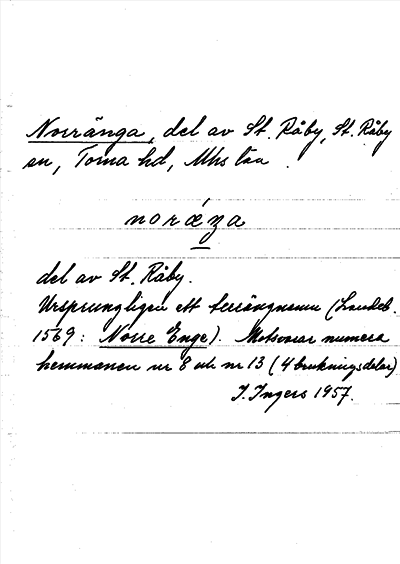 Norränga, del av St. Råby, St. Råby
sn, Torna hd, Mhs län.
norǽŋa
del av St. Råby.
Ursprungligen ett terrängnamn (Landeb.
1569: Norre Enge). Motsvarar numera
hemmanen nr 8 och nr 13 (4 brukningsdelar)
I. Ingers 1957.